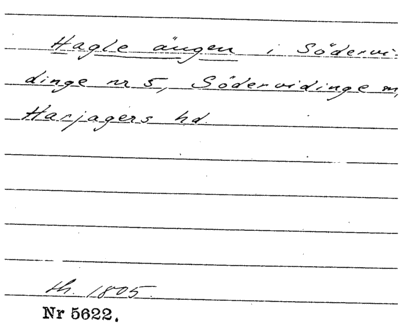 Hagle ängen i Södervi-
dinge nr 5, Södervidinge
Harjagers hd
1805.
Nr 5622.